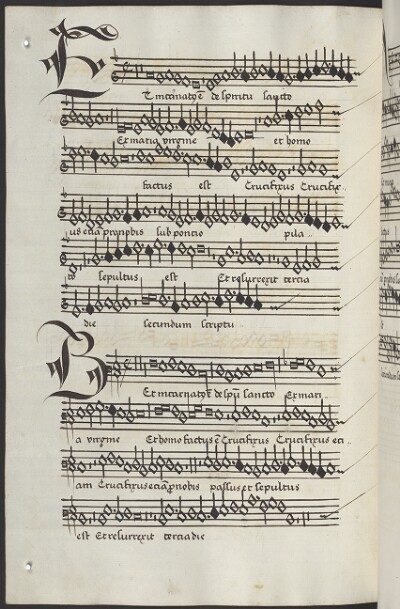 Et incarnat⁹ ē de spiritu sancto
Ex maria virgine et homo
factus est Crucifixus Crucifix
us etiā pro nobis sub poncio pila
to sepultus est Et resurrexit tercia
die secundum scriptu
Et incarnat⁹ ē de spū sancto Ex mari
a virgine Et homo factus ē Crucifixus Crucifixus eci
am Crucifixus eciā ꝓ nobis passus et sepultus
est Et resurrexit tercia die